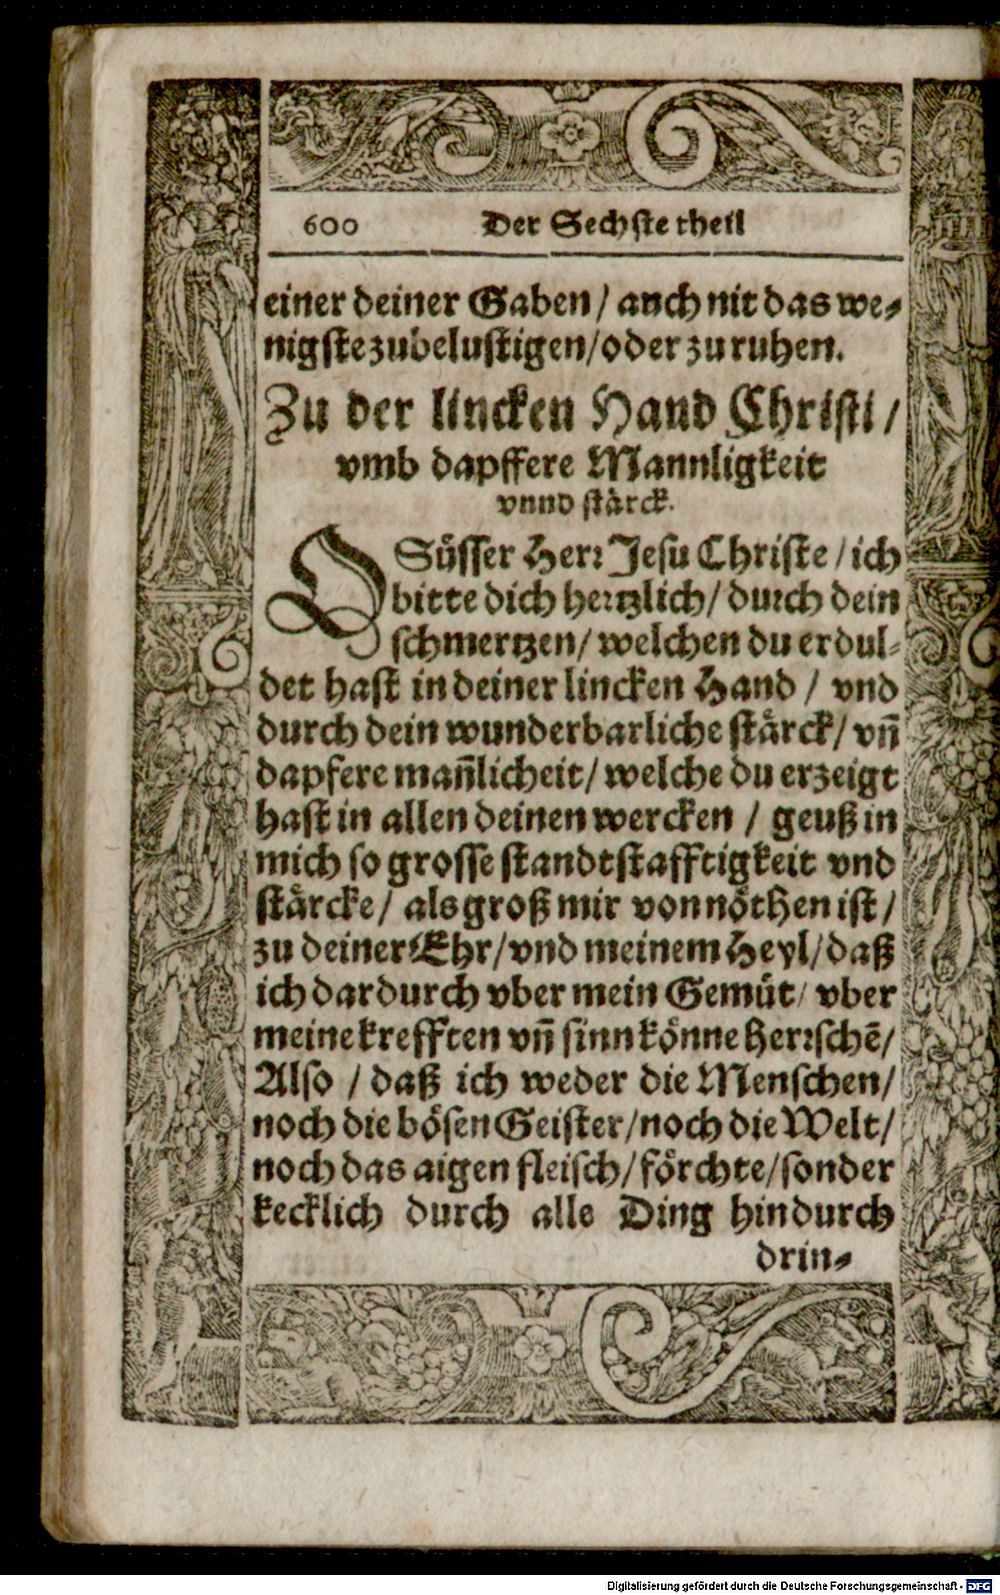 600 Der Sechste theil
einer deiner Gaben / auch nit das we-
nigste zubelustigen/oder zu ruhen.
Zu der lincken Hand Christi /
vmb dapffere Mannligkeit
vnnd stärck.
O Süsser Herr Jesu Christe / ich
bitte dich hertzlich/ durch dein
schmertzen/ welchen du erdul-
det hast in deiner lincken Hand / vnd
durch dein wunderbarliche stärck/ vñ
dapfere mañlicheit/ welche du erzeigt
hast in allen deinen wercken / geuß in
mich so grosse standtstafftigkeit vnd
stärcke/ als groß mir von nöthen ist/
zu deiner Ehr/vnd meinem Heyl/daß
ich dardurch vber mein Gemüt/ vber
meine krefften vñ sinn könne Herrschẽ/
Also / daß ich weder die Menschen/
noch die bösen Geister/noch die Welt/
noch das aigen fleisch/förchte/sonder
kecklich durch alle Ding hindurch
drin-
Digitalisierung gefördert durch die Deutsche Forschungsgemeinschaft - DFG